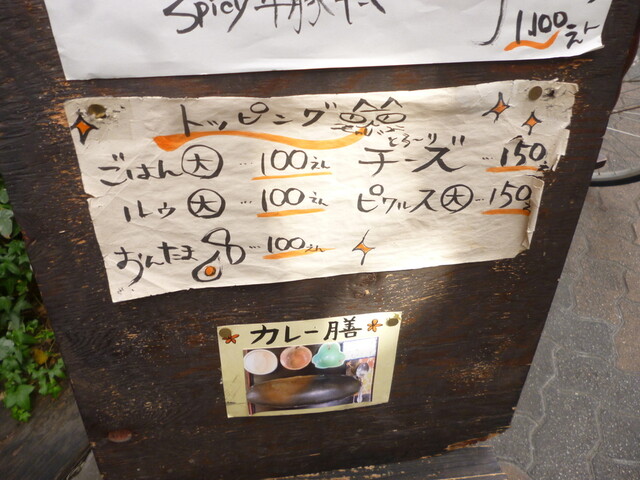 Spicy
1,100えん
トッピング
ごはん大 … 100えん
とろ～り
チーズ … 150
ルゥ大 … 100えん
ピクルス大 … 150
おんたま … 100えん
カレー膳